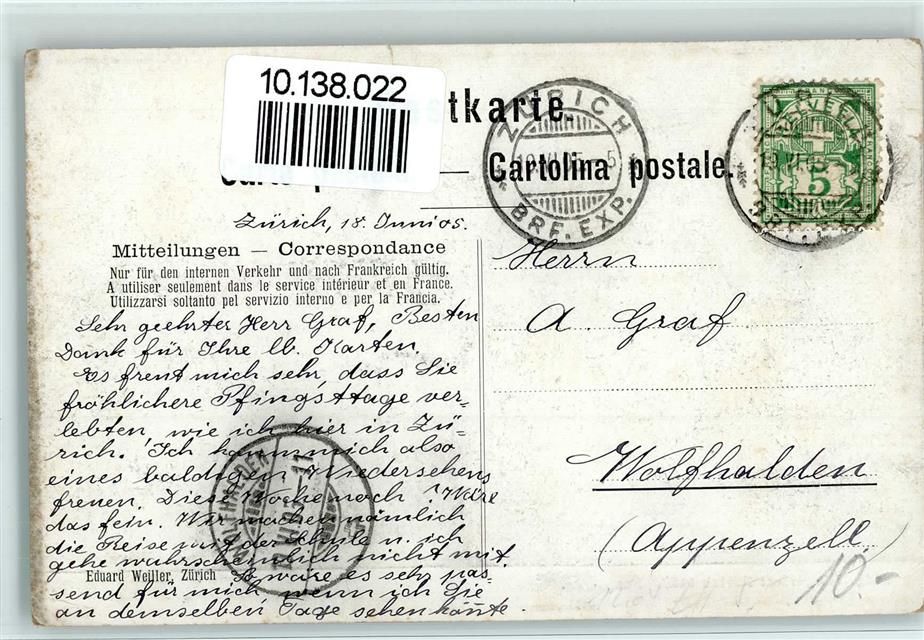 10.138.022
stkarte.
ZÜRICH
BRF. EXP.
— Cartolina postale.
HELVETIA
5
Zürich, 18. Juni 05.
Mitteilungen — Correspondance
Nur für den internen Verkehr und nach Frankreich gültig.
A utiliser seulement dans le service intérieur et en France.
Utilizzarsi soltanto pel servizio interno e per la Francia.
Herrn
A. Graf
Wolfhalden
(Appenzell)
10.-
Sehr geehrter Herr Graf, Besten
Dank für Ihre lb. Karten.
Es freut mich sehr, dass Sie
fröhlichere Pfingsttage ver-
lebten, wie ich hier in Zü-
rich. Ich kann mich also
eines baldigen Wiedersehens
freuen. Diese Woche noch? Wäre
das fein. Wir machen nämlich
die Reise mit der Schule u. ich
gehe wahrscheinlich nicht mit.
So wäre es sehr pas-
send für mich wenn ich Sie
an demselben Tage sehen könnte.
Eduard Weiller, Zürich